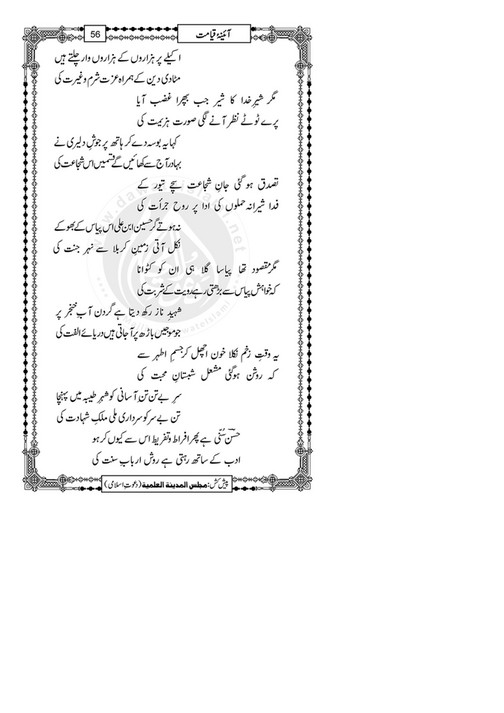 آئینۂ قیامت
56
اکیلے پر ہزاروں کے ہزاروں وار چلتے ہیں
مٹا دی دین کے ہمراہ عزت شرم و غیرت کی
مگر شیر خدا کا شیر جب بپھرا غضب آیا
پرے ٹوٹے نظر آنے لگی صورت ہزیمت کی
کہا یہ بوسہ دے کر ہاتھ پر جوشِ دلیری نے
بہادر آج سے کھائیں گے قسمیں اس شجاعت کی
تصدق ہو گئی جانِ شجاعت سچے تیور کے
فدا شیرانہ حملوں کی ادا پر روح جرأت کی
نہ ہوتے گر حسین ابن علی اس پیاس کے بھوکے
نکل آتی زمینِ کربلا سے نہر جنت کی
مگر مقصود تھا پیاسا گلا ہی ان کو کٹوانا
کہ خواہش پیاس سے بڑھتی رہے رویت کے شربت کی
شہیدِ ناز رکھ دیتا ہے گردن آبِ خنجر پر
جو موجیں باڑھ پر آ جاتی ہیں دریائے الفت کی
یہ وقتِ زخم نکلا خون اچھل کر جسمِ اطہر سے
کہ روشن ہوگئی مشعل شبستانِ محبت کی
سرِ بے تن تن آسانی کو شہرِ طیبہ میں پہنچا
تن بے سر کو سرداری ملی ملکِ شہادت کی
حسن سُنی ہے پھر افراط و تفریط اس سے کیوں کر ہو
ادب کے ساتھ رہتی ہے روش اربابِ سنت کی
پیش کش: مجلس المدینۃ العلمیۃ (دعوتِ اسلامی)